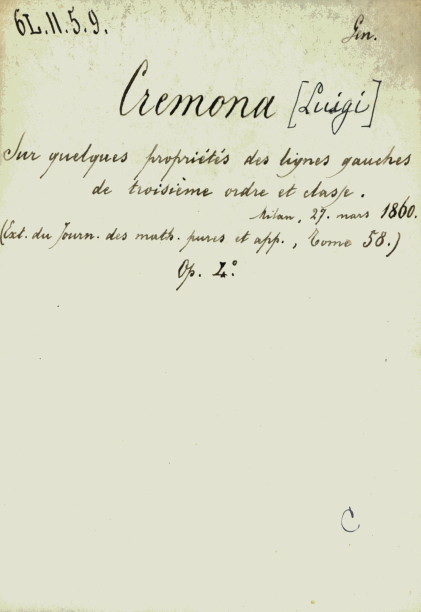 6L.11.5.9.
Gen.
Cremona [Luigi]
Sur quelques propriétés des lignes gauches
de troisième ordre et classe.
Milan, 27. mars 1860.
(Ext. du Journ. des math. pures et app., Tome 58.)
Op. 4°
C